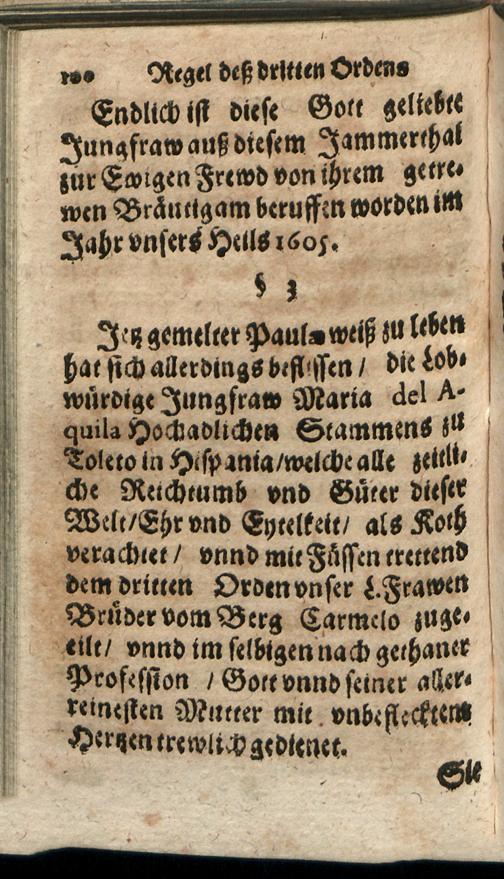 100 Regel deß dritten Ordens
Endlich ist diese Gott geliebte
Jungfraw auß diesem Jammerthal
zur Ewigen Frewd von ihrem getre-
wen Bräutigam beruffen worden im
Jahr vnsers Heils 1605.
§ 3
Jetz gemelter Paulæ weiß zu leben
hat sich allerdings beflissen / die Lob-
würdige Jungfraw Maria del A-
quila Hochadlichen Stammens zu
Toleto in Hispania/welche alle zeitli-
che Reichtumb vnd Güter dieser
Welt/Ehr vnd Eytelkeit/ als Koth
verachtet / vnnd mit Füssen trettend
dem dritten Orden vnser L.Frawen
Brüder vom Berg Carmelo zuge-
eilt/ vnnd im selbigen nach gethaner
Profession / Gott vnnd seiner aller-
reinesten Mutter mit vnbeflecktem
Hertzen trewlich gedienet.
Sie